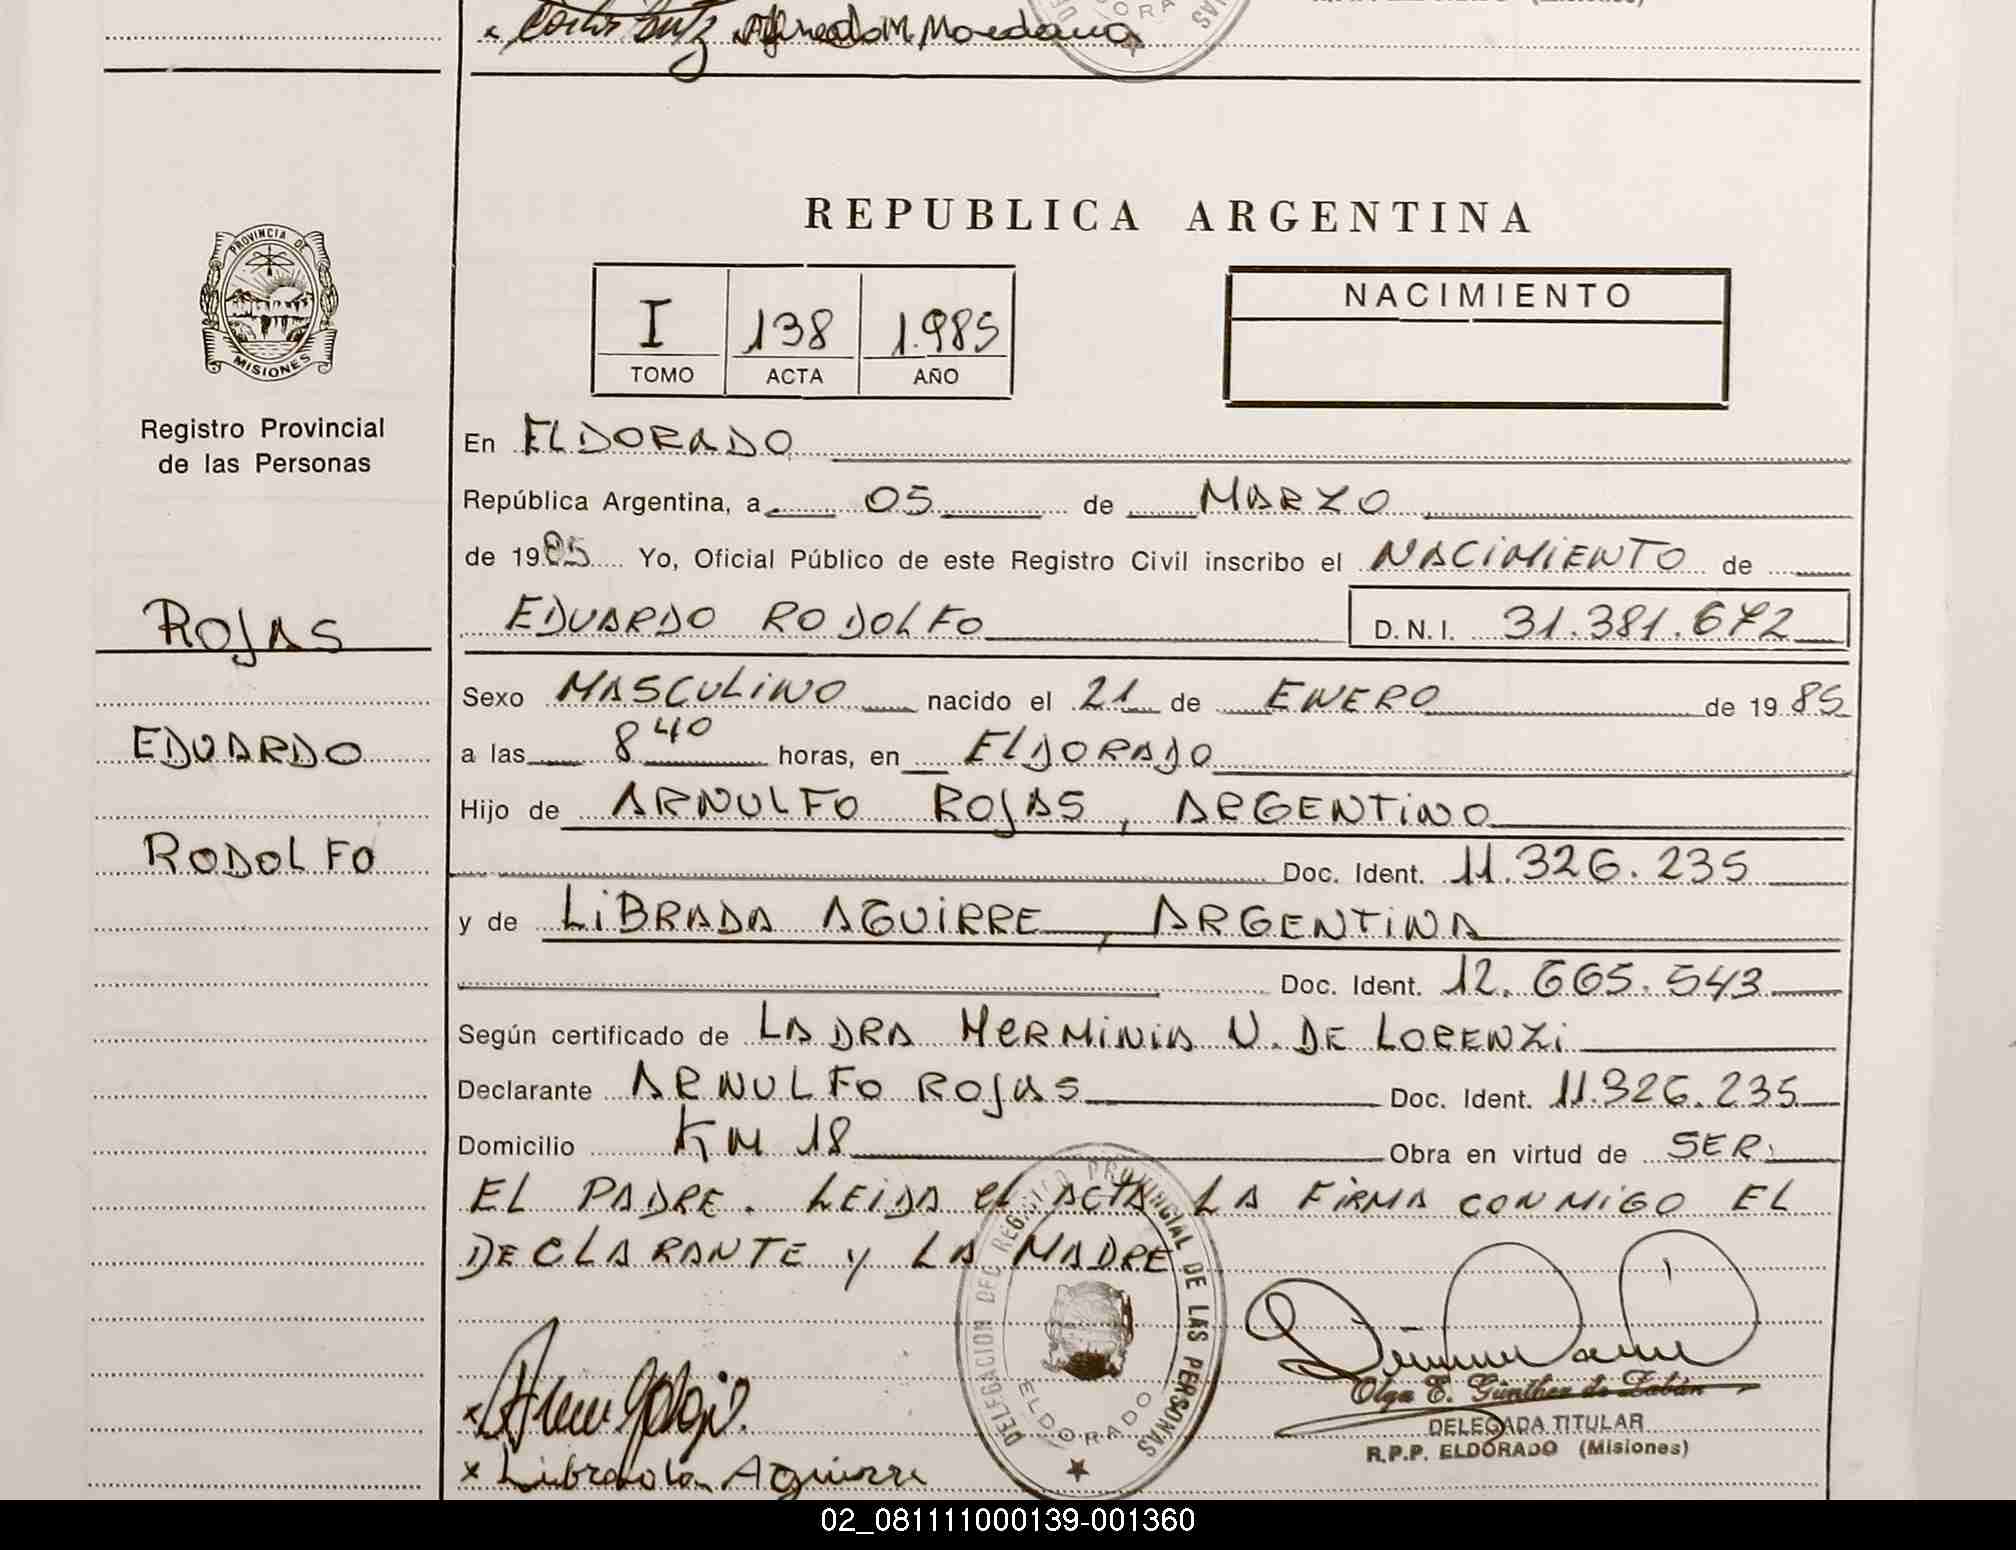 Alfredo M. Moedana
PROVINCIA DE
MISIONES
Registro Provincial
de las Personas
ROJAS
EDUARDO
RODOLFO
REPUBLICA ARGENTINA
I 138 1.985
TOMO ACTA AÑO
NACIMIENTO
En ELDORADO
República Argentina, a 05 de MARZO
de 1985 Yo, Oficial Público de este Registro Civil inscribo el NACIMIENTO de
EDUARDO RODOLFO D.N.I. 31.381.672
Sexo MASCULINO nacido el 21 de ENERO de 1985
a las 8 40 horas, en ELDORADO
Hijo de ARNULFO ROJAS, ARGENTINO
Doc. Ident. 11.326.235
y de LIBRADA AGUIRRE, ARGENTINA
Doc. Ident. 12.665.543
Según certificado de LA DRA HERMINIA N. DE LORENZI
Declarante ARNULFO ROJAS Doc. Ident. 11.326.235
Domicilio KM 18 Obra en virtud de SER
EL PADRE. LEIDA el ACTA LA FIRMA CONMIGO EL
DECLARANTE y LA MADRE
DELEGACION DEL REGISTRO PROVINCIAL DE LAS PERSONAS
ELDORADO
Olga E. Günther de Zabán
DELEGADA TITULAR
R.P.P. ELDORADO (Misiones)
x Librada Aguirre
02_081111000139-001360